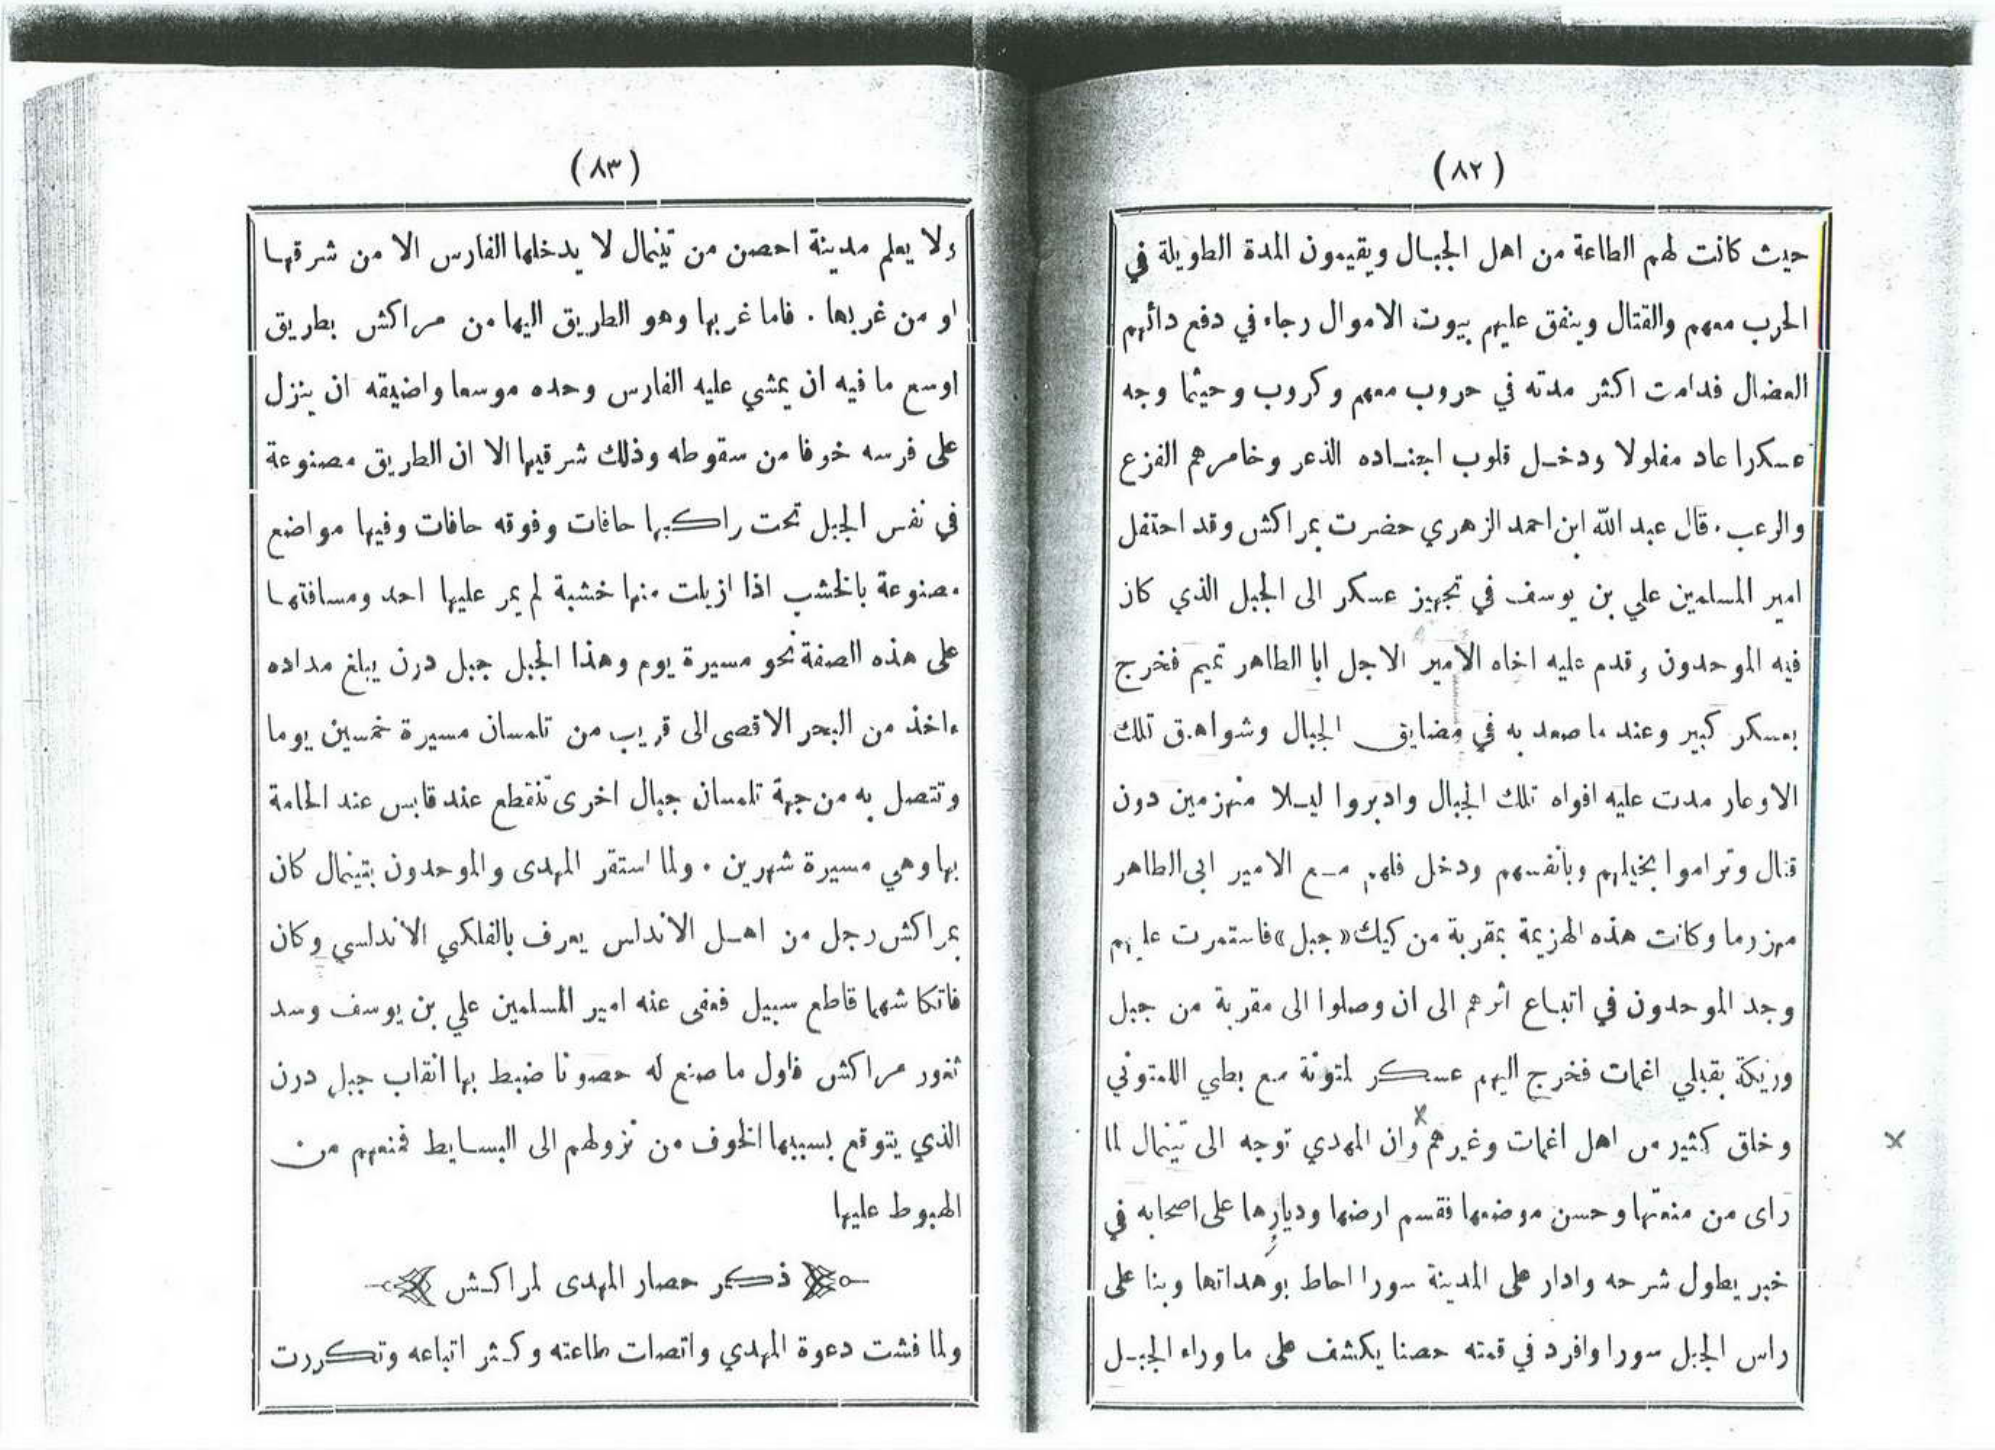 (٨٢)
حيث كانت لهم الطاعة من اهل الجبـال ويقيمون المدة الطويلة في
الحرب معهم والقتال وينفق عليهم بيوت الاموال رجاء في دفع دائهم
العضال فدامت اكثر مدته في حروب معهم وكروب وحيثما وجه
عسكرا عاد مفلولا ودخـل قلوب اجنـاده الذعر وخامرهم الفزع
والرعب . قال عبد الله ابن احمد الزهري حضرت بمراكش وقد احتفل
امير المسلمين علي بن يوسف في تجهيز عسكر الى الجبل الذي كان
فيه الموحدون وقدم عليه اخاه الامير الاجل ابا الطاهر تميم فخرج
بعسكر كبير وعند ما صعد به في مضايق الجبال وشواهق تلك
الاوعار مدت عليه افواه تلك الجبال وادبروا ليـلا منهزمين دون
قتال وتراموا بخيلهم وبانفسهم ودخل فلهم مـع الامير ابى الطاهر
مهزوما وكانت هذه الهزيمة بمقربة من كيك «جبل» فاستمرت عليهم
وجد الموحدون في اتبـاع اثرهم الى ان وصلوا الى مقربة من جبل
وريكة بقبلي اغمات فخرج اليهم عسكر لمتونة مع بطي اللمتوني
وخلق كثير من اهل اغمات وغيرهم وان المهدي توجه الى تينمال لما
راى من منعتها وحسن موضعها فقسم ارضها وديارها على اصحابه في
خبر يطول شرحه وادار على المدينة سورا احاط بوهداتها وبنا على
راس الجبل سورا وافرد في قمته حصنا يكشف على ما وراء الجبـل
(٨٣)
ولا يعلم مدينة احصن من تينمال لا يدخلها الفارس الا من شرقهـا
او من غربها . فاما غربها وهو الطريق اليها من مراكش بطريق
اوسع ما فيه ان يمشي عليه الفارس وحده موسعا واضيقه ان ينزل
على فرسه خوفا من سقوطه وذلك شرقيها الا ان الطريق مصنوعة
في نفس الجبل تحت راكبها حافات وفوقه حافات وفيها مواضع
مصنوعة بالخشب اذا ازيلت منها خشبة لم يمر عليها احد ومسافتهـا
على هذه الصفة نحو مسيرة يوم وهذا الجبل جبل درن يبلغ مداده
ءاخذ من البحر الاقصى الى قريب من تلمسان مسيرة خمسين يوما
وتتصل به من جهة تلمسان جبال اخرى تنقطع عند قابس عند الحامة
بها وهي مسيرة شهرين . ولما استقر المهدى والموحدون بتينمال كان
بمراكش رجل من اهـل الاندلس يعرف بالفلكي الاندلسي وكان
فاتكا شهما قاطع سبيل فعفى عنه امير المسلمين علي بن يوسف وسد
ثغور مراكش فاول ما صنع له حصونا ضبط بها انقاب جبل درن
الذي يتوقع بسببها الخوف من نزولهم الى البسـايط فمنعهم من
الهبوط عليها
ذكر حصار المهدى لمراكـش
ولما فشت دعوة المهدي واتصلت طاعته وكـثر اتباعه وتكررت